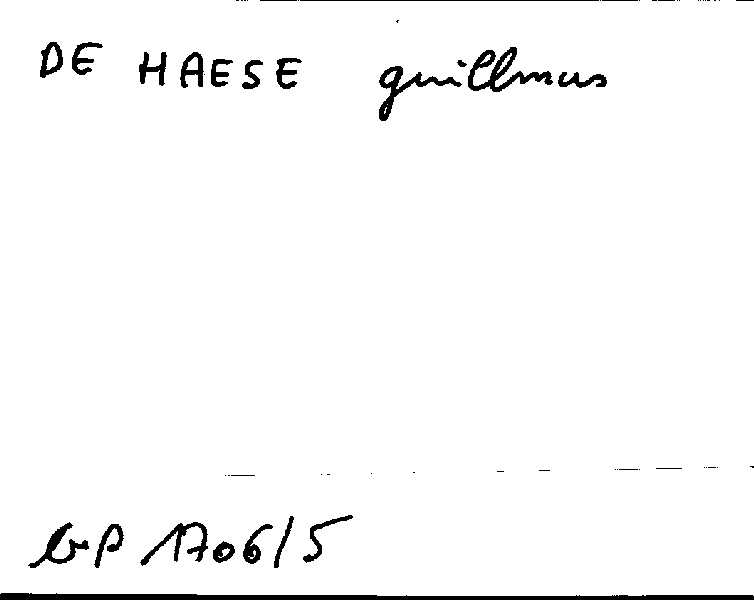 DE HAESE guillmus
GP 1706/5